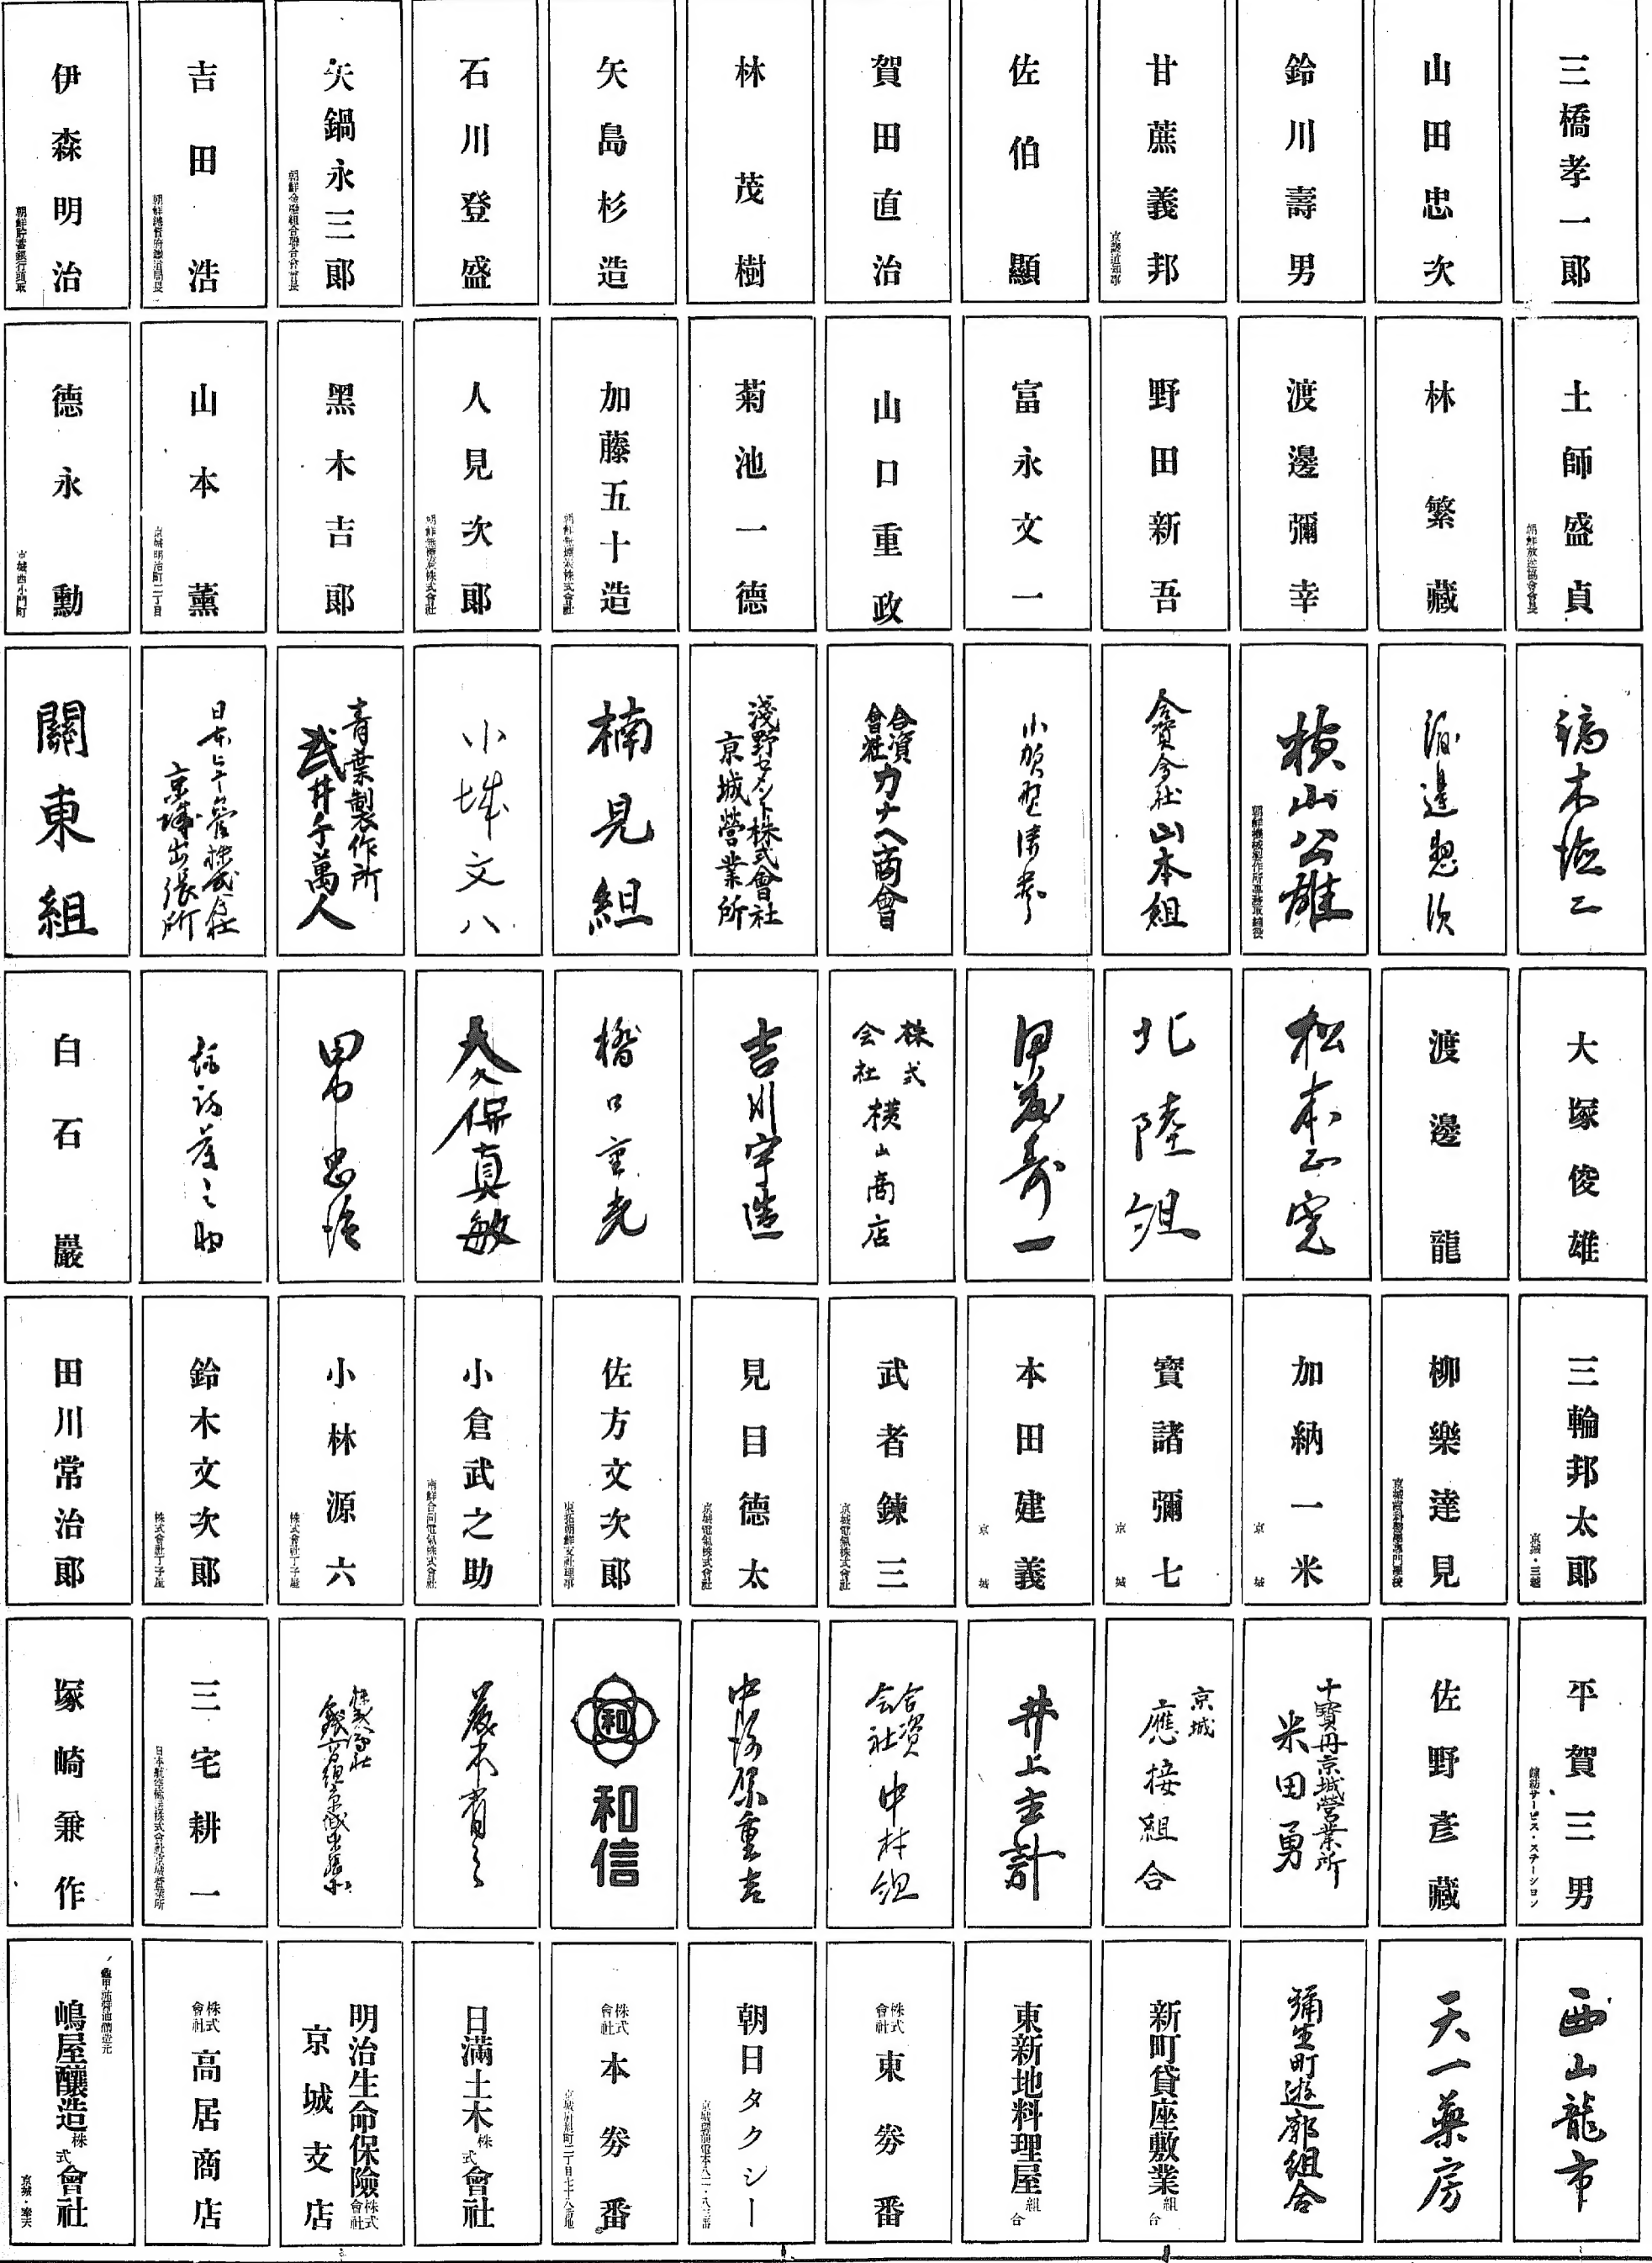 三橋孝一郎
山田忠次
鈴川壽男
甘蔗義邦
京畿道知事
佐伯顯
賀田直治
林茂樹
矢島杉造
石川登盛
矢鍋永三郎
朝鮮金融組合聯合會會長
吉田浩
朝鮮總督府鐵道局長
伊森明治
朝鮮貯蓄銀行頭取
土師盛貞
朝鮮放送協會會長
林繁藏
渡邊彌幸
野田新吾
富永文一
山口重政
菊池一德
加藤五十造
朝鮮無煙炭株式會社
人見次郎
朝鮮無煙炭株式會社
黑木吉郎
山本薰
京城明治町二丁目
德永勳
京城西小門町
渡邊
橫山公雄
朝鮮機械製作所專務取締役
合資會社山本組
小賀野
合資會社カナヘ商會
淺野セメント株式會社
京城營業所
楠見組
小城文八
青葉製作所
武井千萬人
日本ヒューム管株式會社
京城出張所
關東組
大塚俊雄
渡邊龍
松本正寬
北陸組
株式会社横山商店
吉川宇造
橋口重光
大久保真敏
男忠治
諏訪
白石巖
三輪邦太郎
京城・三越
柳樂達見
京城齒科醫學專門學校
加納一米
京城
寳諸彌七
京城
本田建義
京城
武者鍊三
京城電氣株式會社
見目德太
京城電氣株式會社
佐方文次郎
東拓朝鮮支社理事
小倉武之助
南鮮合同電氣株式會社
小林源六
株式會社丁子屋
鈴木文次郎
株式會社丁子屋
田川常治郎
平賀三男
鐘紡サービス・ステーション
佐野彥藏
千寶丹京城營業所
米田勇
京城
應接組合
井上主計
合資会社中村組
和
和信
三宅耕一
日本航空輸送株式會社京城營業所
塚崎兼作
西山龍市
天一藥房
彌生町遊廓組合
新町貸座敷業組合
東新地料理屋組合
株式會社東券番
朝日タクシー
株式會社本券番
京城府旭町二丁目七十八番地
日滿土木株式會社
明治生命保險株式會社
京城支店
株式會社高居商店
龜甲
嶋屋釀造株式會社